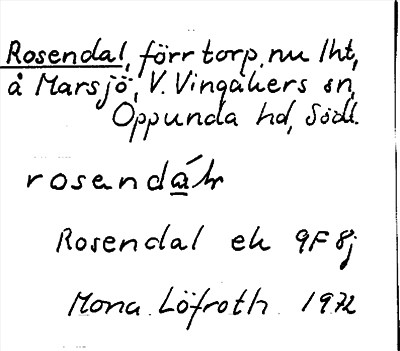 Rosendal, förr torp, nu lht,
å Marsjö, V. Vingåkers sn,
Oppunda hd, Södl.
rosendàl
Rosendal ek 9F 8j
Mona Löfroth 1972